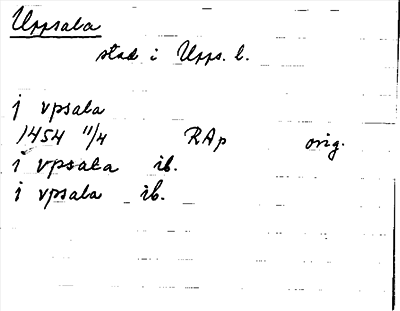 Uppsala
stad i Upps. l.
j vpsala
1454 11/4 RAp orig.
i vpsala ib.
i vpsala ib.